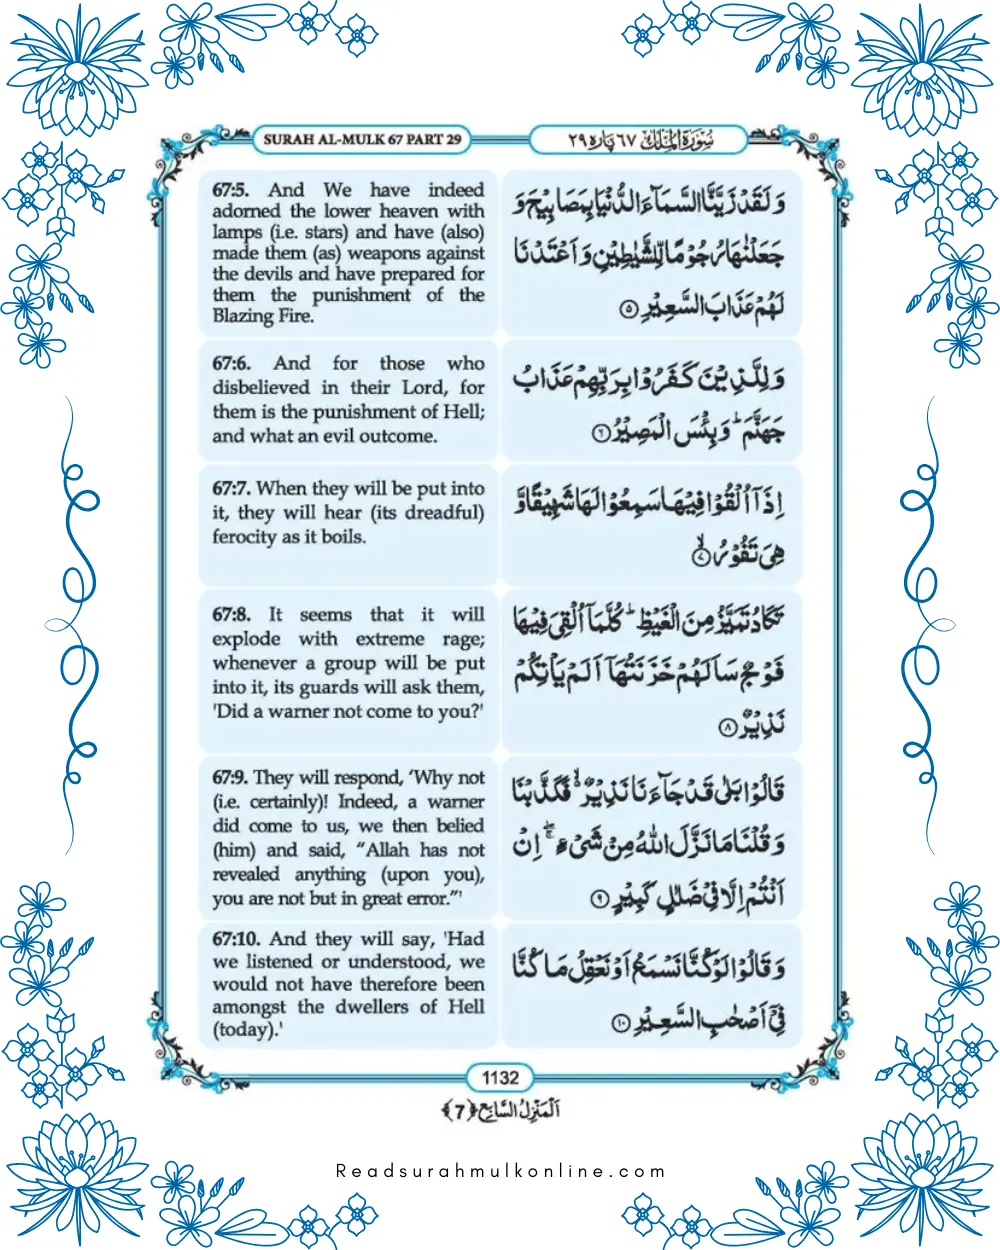 SURAH AL-MULK 67 PART 29
سُوْرَةُ الْمُلْك ٦٧ پَارَہ ٢٩
67:5. And We have indeed
adorned the lower heaven with
lamps (i.e. stars) and have (also)
made them (as) weapons against
the devils and have prepared for
them the punishment of the
Blazing Fire.
وَلَقَدْ زَيَّنَّا السَّمَآءَ الدُّنْيَا بِمَصَابِيْحَ وَ
جَعَلْنٰهَا رُجُوْمًا لِّلشَّيٰطِيْنِ وَاَعْتَدْنَا
لَهُمْ عَذَابَ السَّعِيْرِ ٥
67:6. And for those who
disbelieved in their Lord, for
them is the punishment of Hell;
and what an evil outcome.
وَلِلَّذِيْنَ كَفَرُوْا بِرَبِّهِمْ عَذَابُ
جَهَنَّمَ ؕ وَبِئْسَ الْمَصِيْرُ ٦
67:7. When they will be put into
it, they will hear (its dreadful)
ferocity as it boils.
اِذَاۤ اُلْقُوْا فِيْهَا سَمِعُوْا لَهَا شَهِيْقًا وَّ
هِيَ تَفُوْرُ ۙ ٧
67:8. It seems that it will
explode with extreme rage;
whenever a group will be put
into it, its guards will ask them,
'Did a warner not come to you?'
تَكَادُ تَمَيَّزُ مِنَ الْغَيْظِ ؕ كُلَّمَاۤ اُلْقِيَ فِيْهَا
فَوْجٌ سَاَلَهُمْ خَزَنَتُهَاۤ اَلَمْ يَاْتِكُمْ
نَذِيْرٌ ٨
67:9. They will respond, ‘Why not
(i.e. certainly)! Indeed, a warner
did come to us, we then belied
(him) and said, “Allah has not
revealed anything (upon you),
you are not but in great error.”'
قَالُوْا بَلٰى قَدْ جَآءَنَا نَذِيْرٌ ۙ فَكَذَّبْنَا
وَقُلْنَا مَا نَزَّلَ اللّٰهُ مِنْ شَيْءٍ ۚ اِنْ
اَنْتُمْ اِلَّا فِيْ ضَلٰلٍ كَبِيْرٍ ٩
67:10. And they will say, 'Had
we listened or understood, we
would not have therefore been
amongst the dwellers of Hell
(today).'
وَقَالُوْا لَوْ كُنَّا نَسْمَعُ اَوْ نَعْقِلُ مَا كُنَّا
فِيْۤ اَصْحٰبِ السَّعِيْرِ ١٠
1132
اَلْمَنْزِلُ السَّابِع ﴿7﴾
Readsurahmulkonline.com